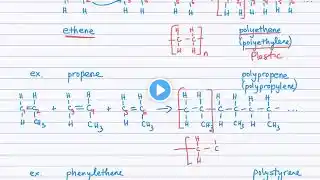 H H H H H H H H
ethene
H H
[ C - C ] n
H H
polyethene
(polyethylene)
Plastic
ex. propene
polypropene
(polypropylene)
H H H H H H H H H H H H
C = C + C = C + C = C → [ C - C ] C - C - C - C - ...
H CH3 H CH3 H CH3 H CH3 H CH3 H CH3
H H
[ C - C
H
ex. phenylethene
polystyrene